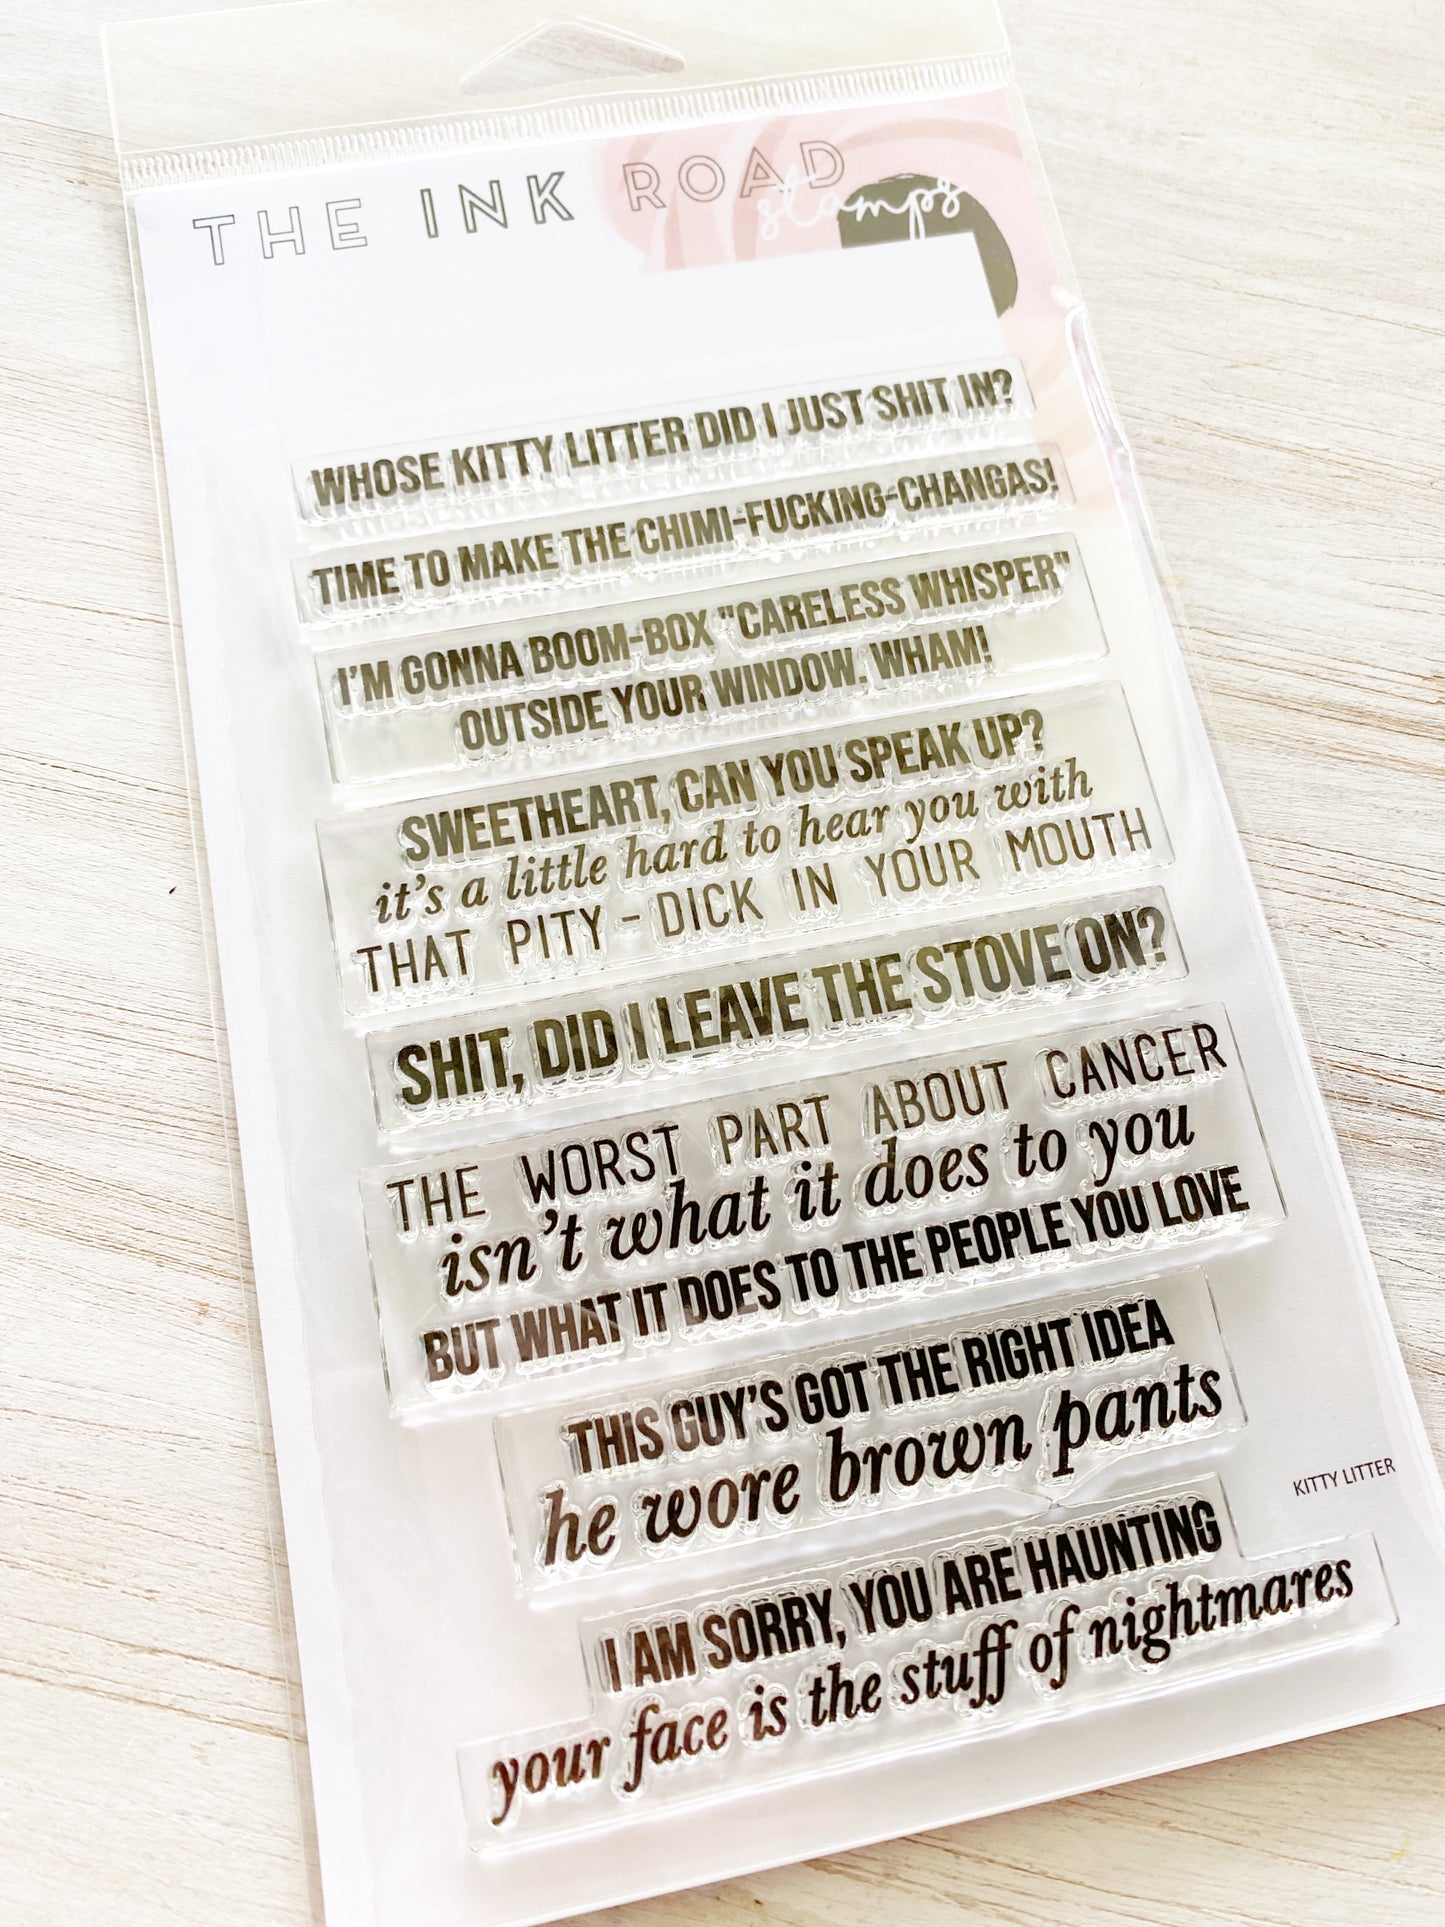 THE INK ROAD
stamps
WHOSE KITTY LITTER DID I JUST SHIT IN?
TIME TO MAKE THE CHIMI-FUCKING-CHANGAS!
I'M GONNA BOOM-BOX "CARELESS WHISPER"
OUTSIDE YOUR WINDOW. WHAM!
SWEETHEART, CAN YOU SPEAK UP?
it's a little hard to hear you with
THAT PITY-DICK IN YOUR MOUTH
SHIT, DID I LEAVE THE STOVE ON?
THE WORST PART ABOUT CANCER
isn't what it does to you
BUT WHAT IT DOES TO THE PEOPLE YOU LOVE
THIS GUY'S GOT THE RIGHT IDEA
he wore brown pants
KITTY LITTER
I AM SORRY, YOU ARE HAUNTING
your face is the stuff of nightmares